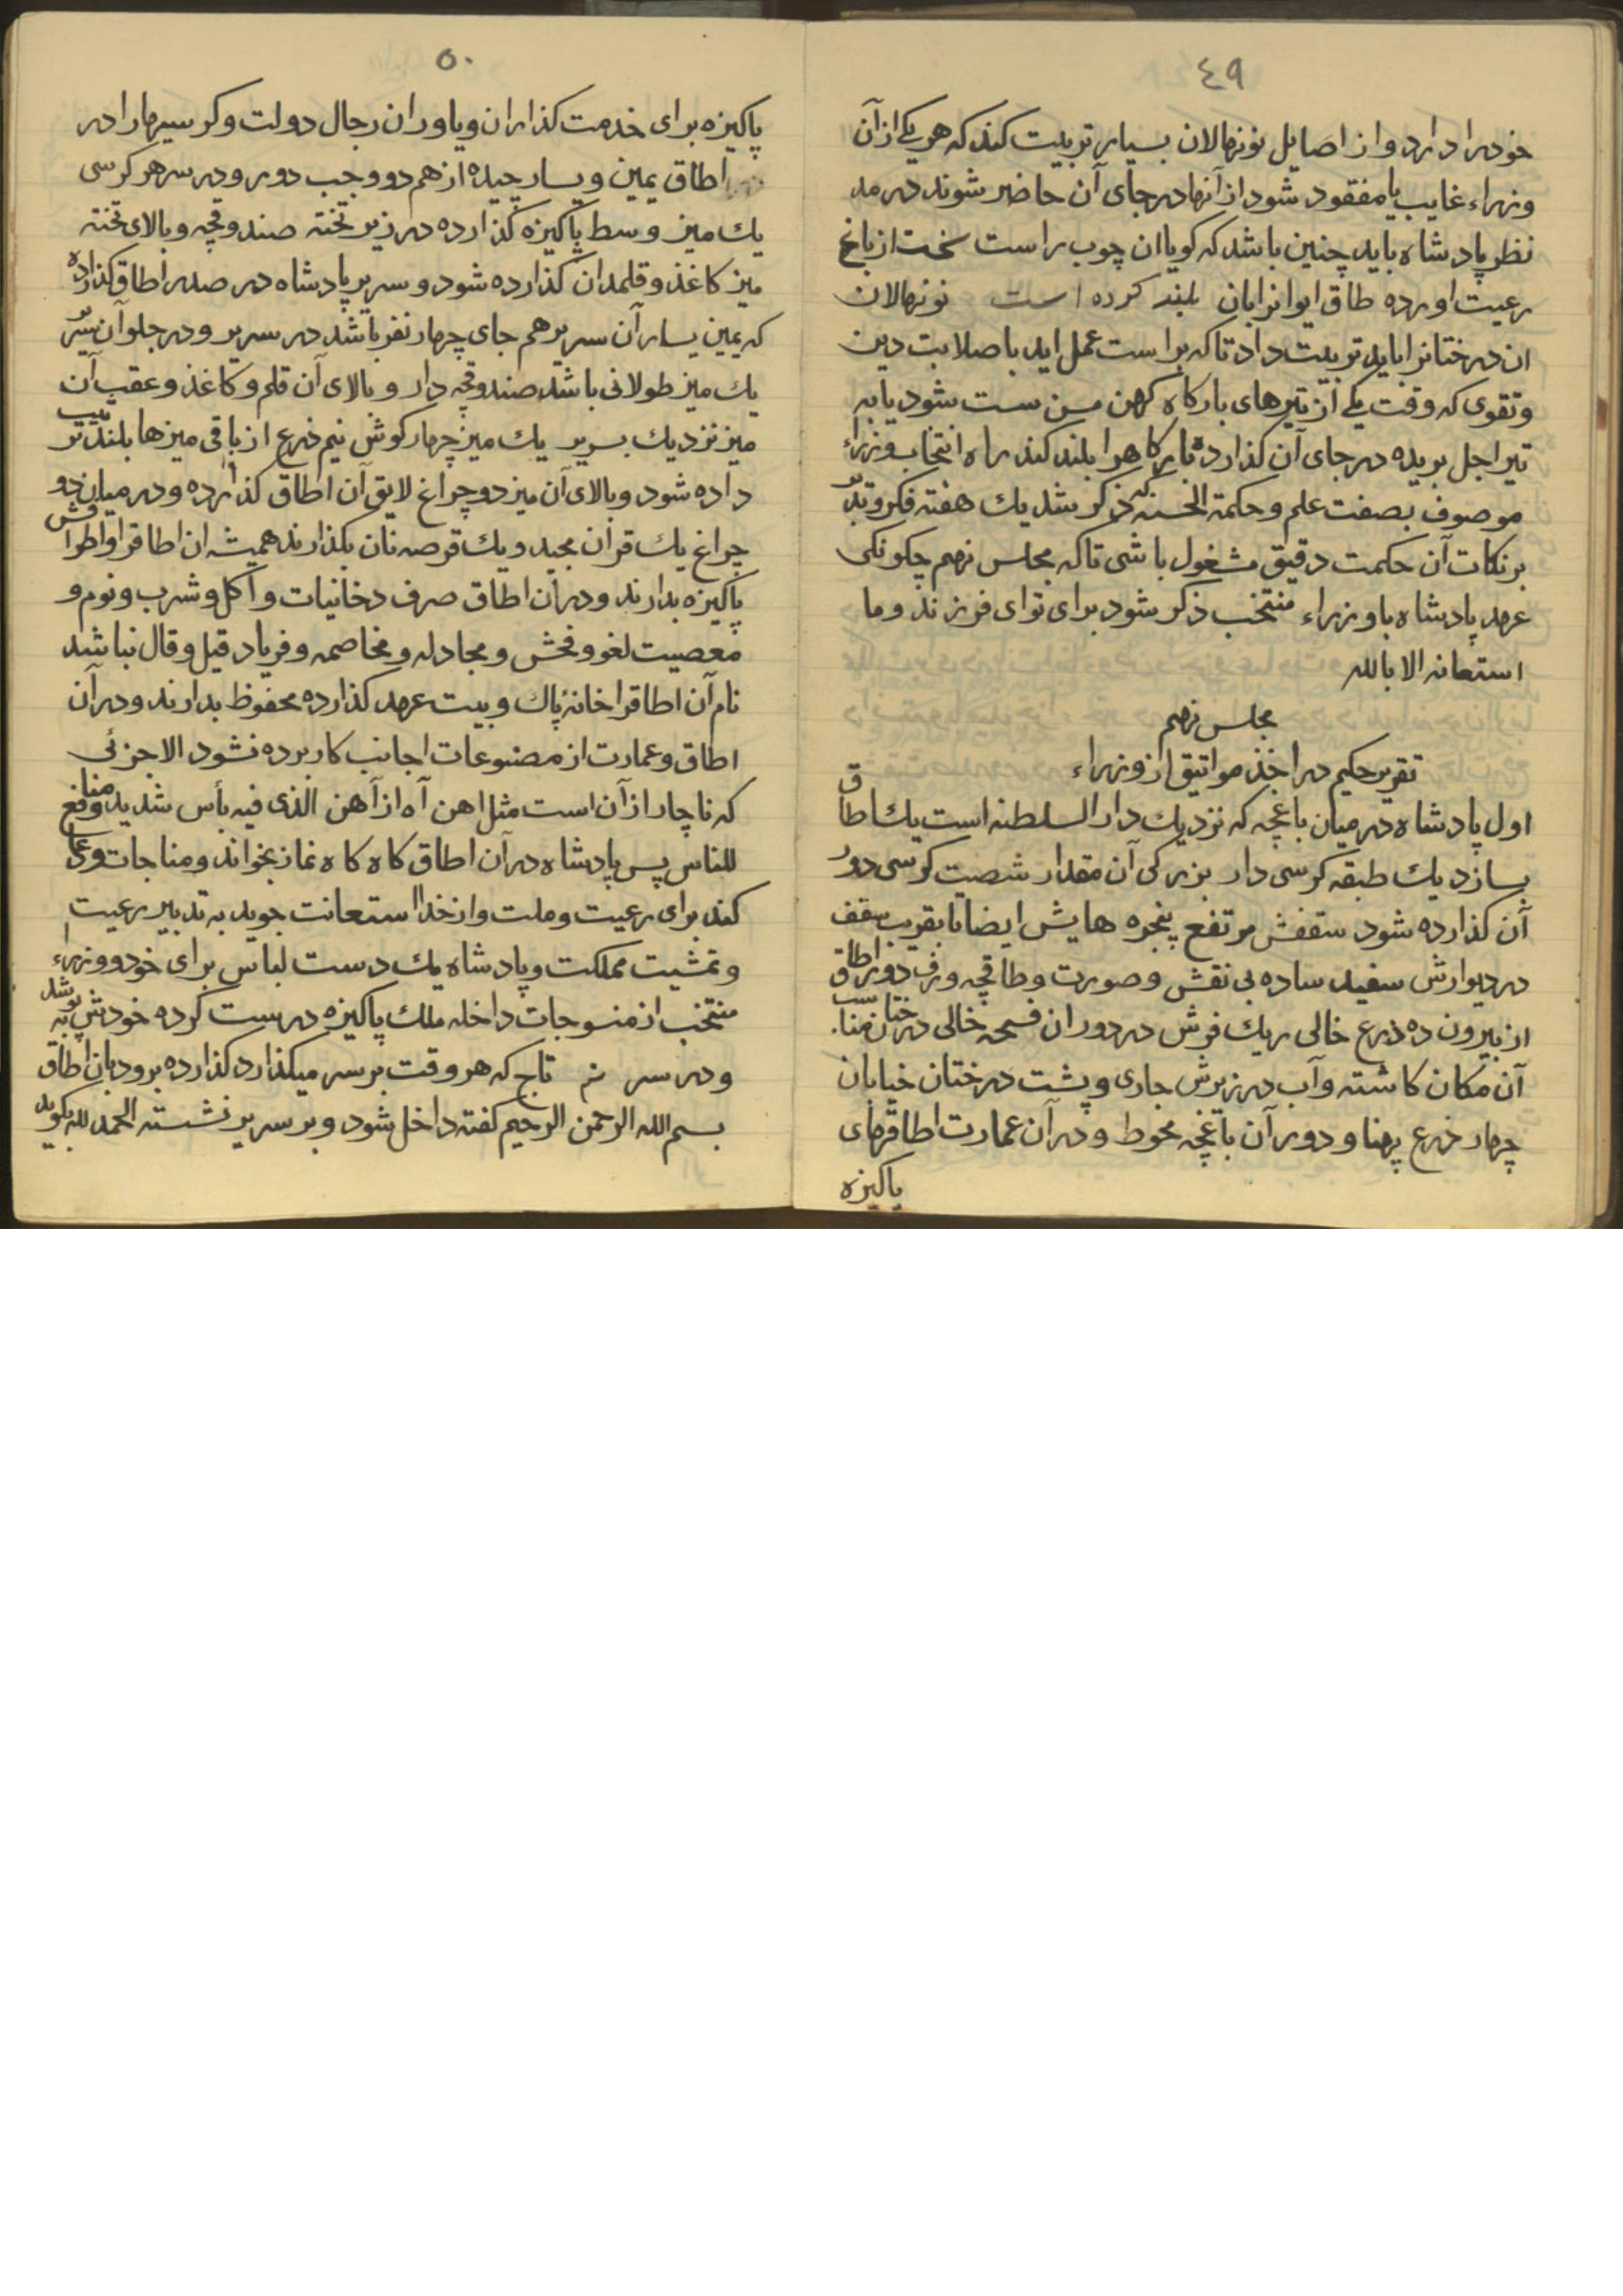 ٤٩
خودرا دارد و از اصایل نونهالان بسیار تربیت کند که هر یکی از آن
وزراء غایب یا مفقود شود از آنها در جای آن حاضر شوند در مد
نظر پادشاه باید چنین باشد که کویا ان چوب راست سخت از باغ
رعیت اورده طاق ایوانرا بان بلند کرده است نونهالان
ان درختانرا باید تربیت داد تا که براست عمل اید با صلابت دین
و تقوی که وقت یکی از تیرهای بارکاه کهن سن سست شود یا به
تیر اجل بریده در جای آن کذارده بارکاهرا بلند کند راه انتخاب وزراء
موصوف بصفت علم و حکمة الحسنه که ذکر شد یك هفته فکر و تدبر
بر نکات آن حکمت دقیق مشغول باشی تا که مجلس نهم چکونکی
عهد پادشاه با وزراء منتخب ذکر شود برای تو ای فرزند و ما
استعانه الا بالله
مجلس نهم
تقریر حکیم در اخذ مواثیق از وزراء
اول پادشاه در میان باغچه که نزدیك دار السلطنه است یك اطاق
بسازد یك طبقه کرسی دار بزرکی آن مقدار شصت کرسی دور
آن کذارده شود سقفش مرتفع پنجره هایش ایضا تا بقریب سقف
در دیوارش سفید ساده بی نقش و صورت و طاقچه و رف دور اطاق
از بیرون ده ذرع خالی ریك فرش در دوران فسحه خالی درختان مناسب
آن مکان کاشته و آب در زیرش جاری و پشت درختان خیابان
چهار ذرع پهنا و دور آن باغچه محوط و در آن عمارت اطاقهای
پاکیزه
٥٠
پاکیزه برای خدمت کذاران و یاوران رجال دولت و کرسیهارا در
اطاق یمین و یسار چیده از هم دو وجب دور و در سر هر کرسی
یك میز وسط پاکیزه کذارده در زیر تخته صندوقچه و بالای تخته
میز کاغذ و قلمدان کذارده شود و سریر پادشاه در صدر اطاق کذارده
که یمین یسار آن سریر هم جای چهار نفر باشد در سریر و در جلو آن سریر
یك میز طولانی باشد صندوقچه دار و بالای آن قلم و کاغذ و عقب آن
میز نزدیك بسریر یك میز چهارکوش نیم ذرع از باقی میزها بلندتر ترتیب
داده شود و بالای آن میز دو چراغ لایق آن اطاق کذارده و در میان دو
چراغ یك قرآن مجید و یك قرصه نان بکذارند همیشه ان اطاق و اطرافش
پاکیزه بدارند و در آن اطاق صرف دخانیات و اکل و شرب و نوم و
معصیت لغو و فحش و مجادله و مخاصمه و فریاد قیل و قال نباشد
نام آن اطاقرا خانۀ پاك و بیت عهد کذارده محفوظ بدارند و در آن
اطاق و عمارت از مصنوعات اجانب کار برده نشود الا جزئی
که ناچار از آن است مثل اهن آه از آهن الذی فیه بأس شدید و منافع
للناس پس پادشاه در آن اطاق کاه کاه نماز بخواند و مناجات و دعا
کند برای رعیت و ملت و از خدا استعانت جوید به تدبیر رعیت
و تمشیت مملکت و پادشاه یك دست لباس برای خود و وزراء
منتخب از منسوجات داخله ملك پاکیزه درست کرده خودش بپوشد
و در سر تاج که هر وقت بر سر میکذارد کذارده برود بان اطاق
بسم الله الرحمن الرحیم کفته داخل شود و بر سریر نشسته الحمد لله بکوید